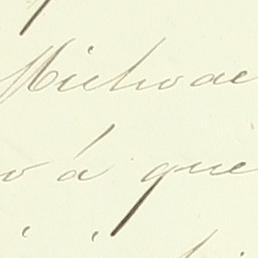 Michoac
o á que